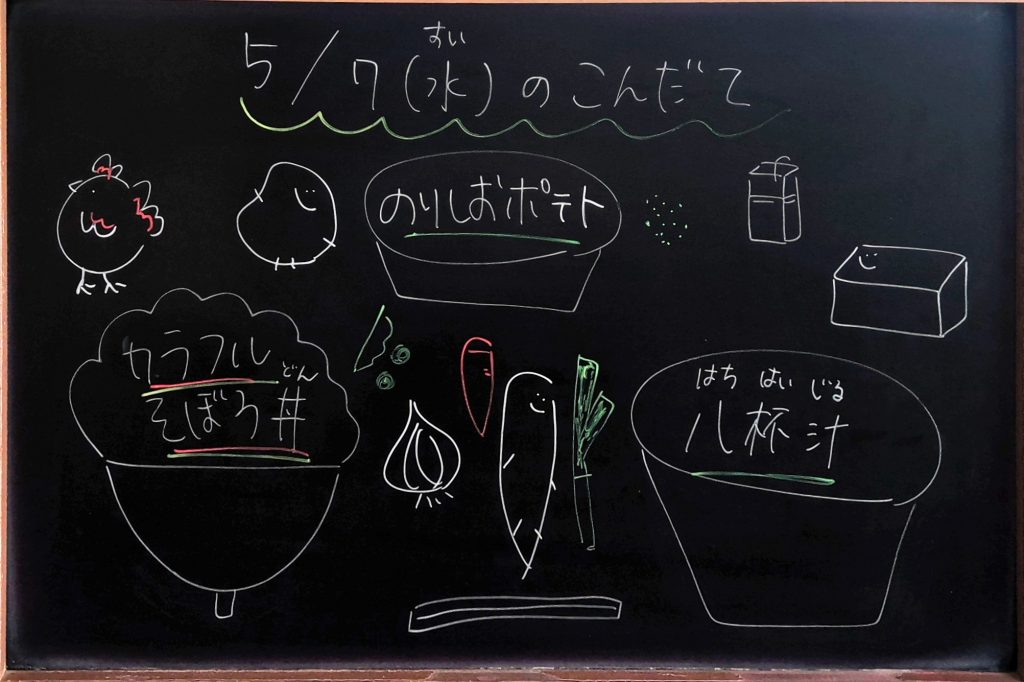 すい
5/7(水)のこんだて
のりしおポテト
カラフル
どん
そぼろ丼
はち はい じる
八杯汁